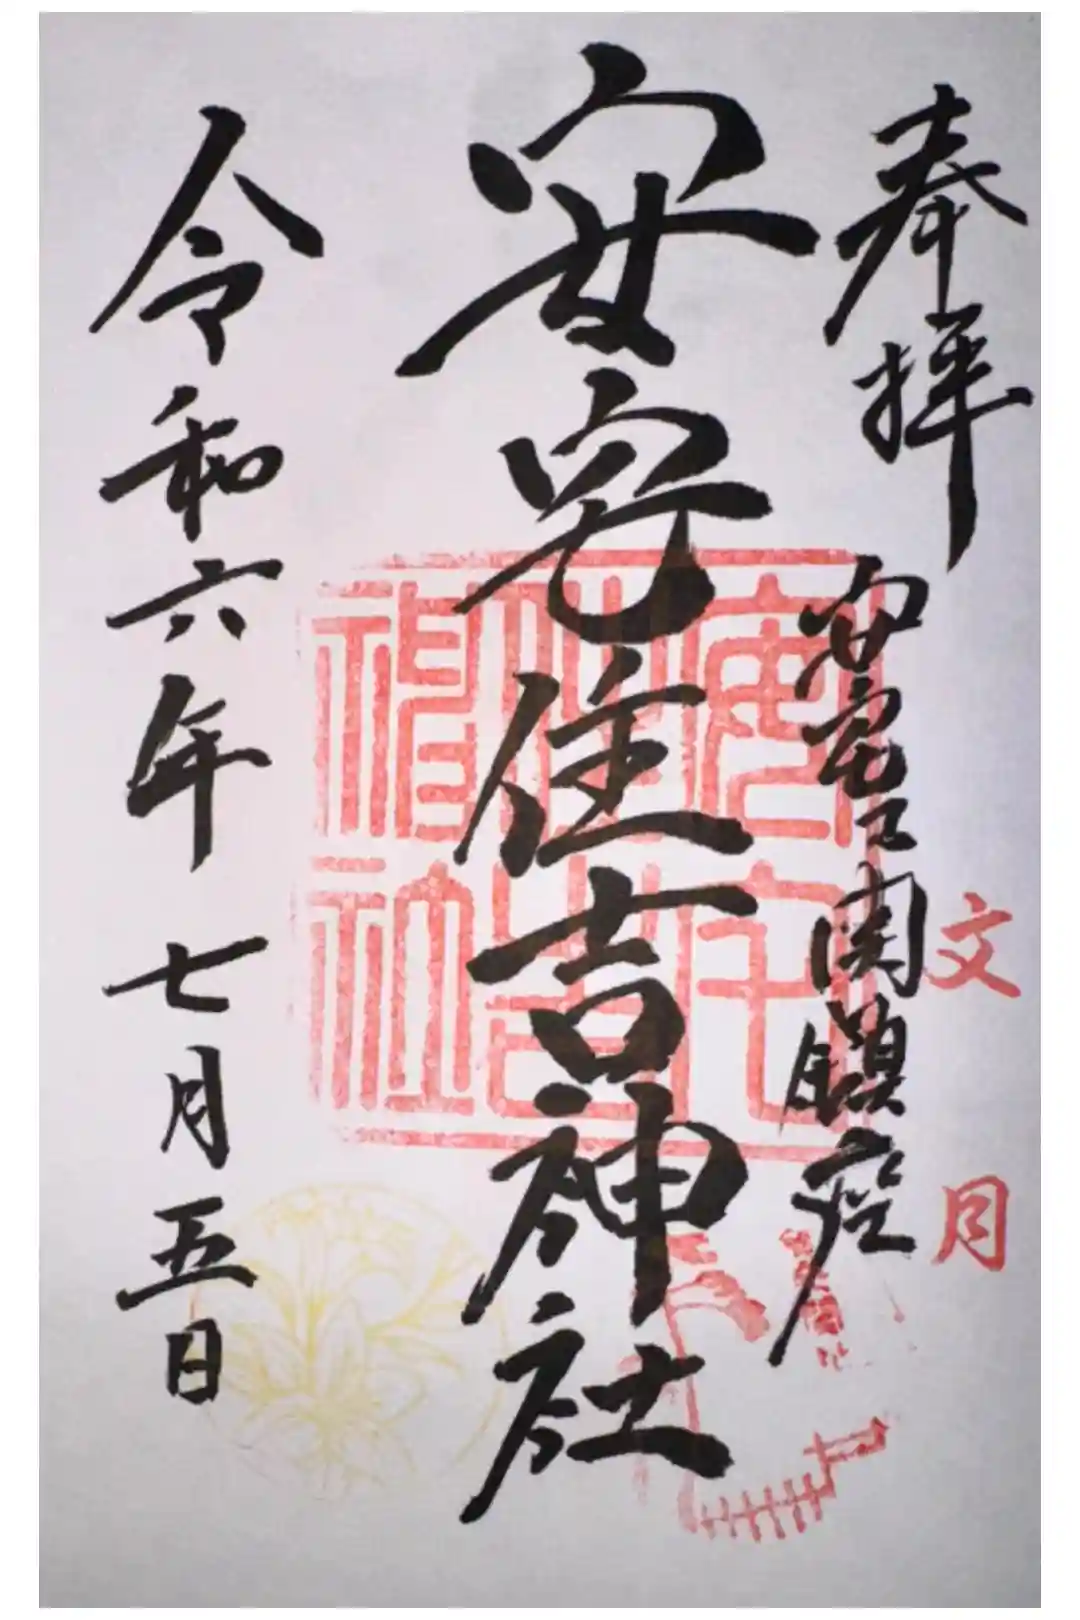 奉拝
安宅之関鎮座
文月
安宅住吉神社
安宅
住吉
神社
令和六年七月五日